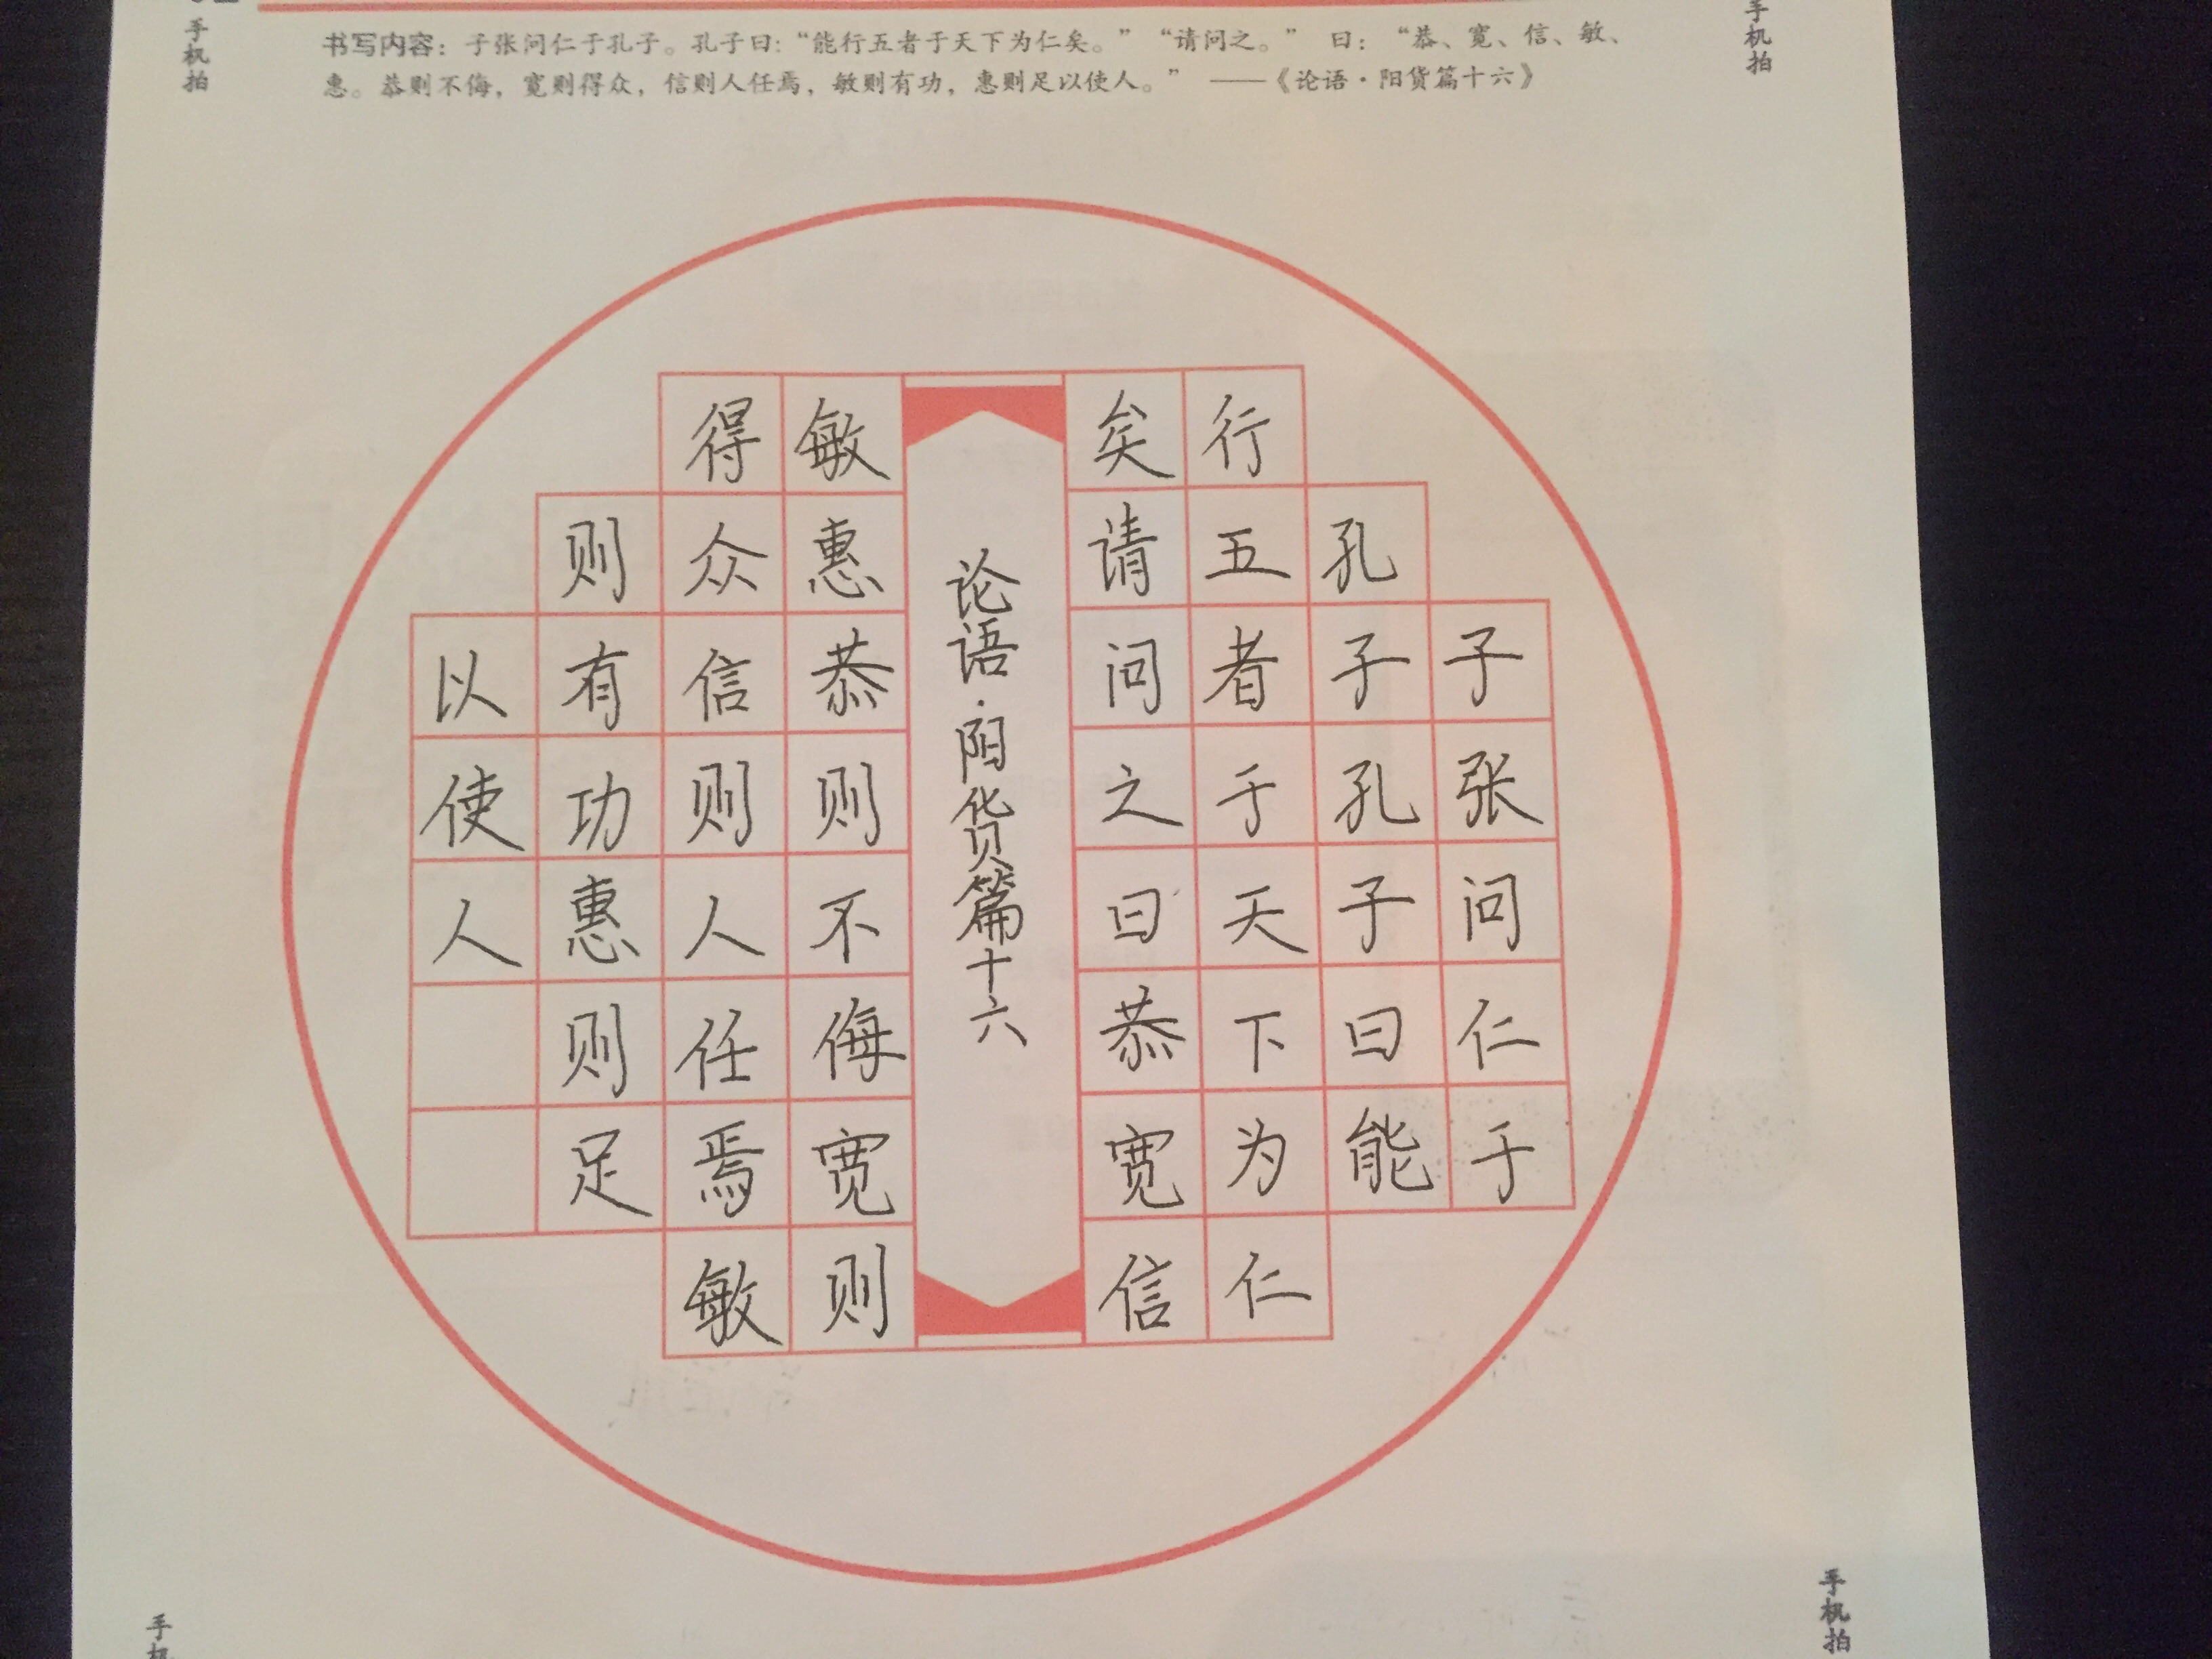 手机拍
手机拍
书写内容：子张问仁于孔子。孔子曰：“能行五者于天下为仁矣。”“请问之。” 曰：“恭、宽、信、敏、
惠。恭则不侮，宽则得众，信则人任焉，敏则有功，惠则足以使人。” ——《论语·阳货篇十六》
子张问仁于
孔子孔子曰能
行五者于天下为仁
矣请问之曰恭宽信
论语·阳货篇十六
敏惠恭则不侮宽则
得众信则人任焉敏
则有功惠则足
以使人
手机拍
手机